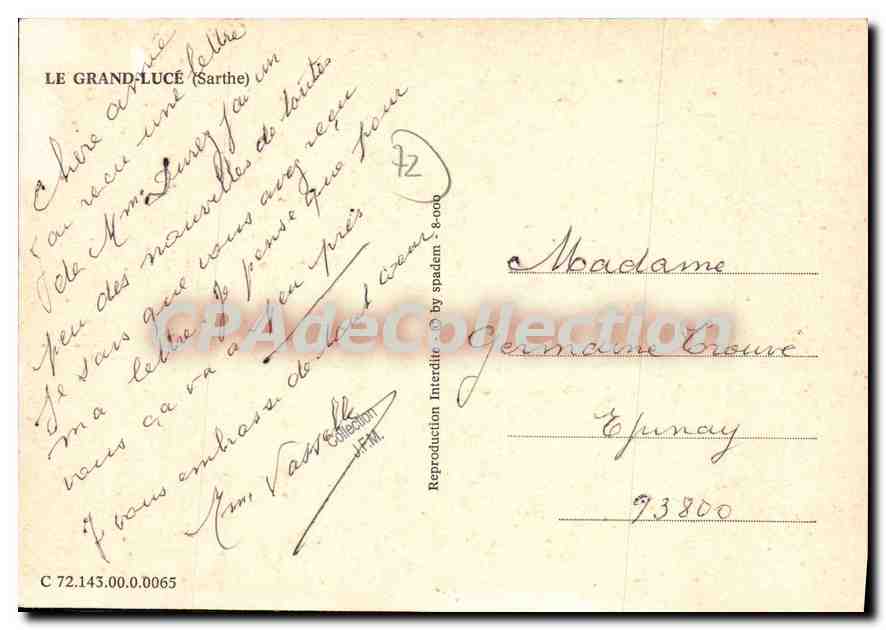 LE GRAND-LUCÉ (Sarthe)
Chère amie
j'ai reçu une lettre
de Mme Durez j'ai un
peu des nouvelles de toutes
Je sais que vous avez reçu
ma lettre. Je pense que pour
vous ça va à peu près
Je vous embrasse de tout cœur
Mme Vasselle
Collection
J.F.M.
C 72.143.00.0.0065
72
Reproduction Interdite - © by spadem - 8-000
Madame
Germaine Trouvé
Epinay
93800
CPAdeCollection